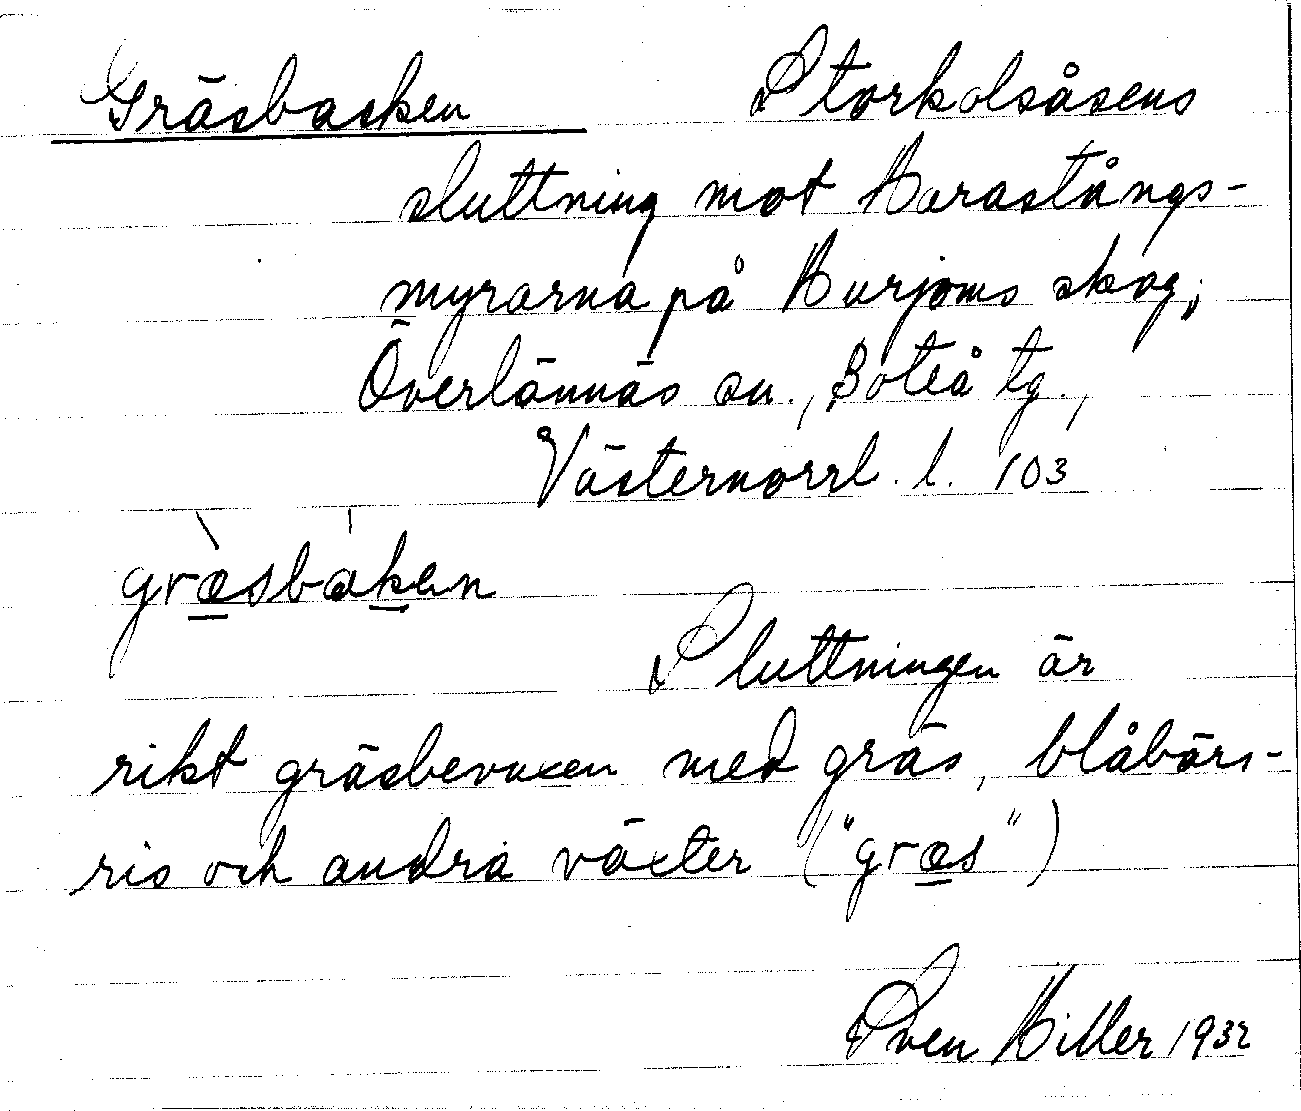 Gräsbacken Storkolsåsens
sluttning mot Harastångs-
myrarna på Hurjoms skog,
Överlännäs sn., Boteå tg.,
Västernorrl. l. 103
græ̀sbákæn
Sluttningen är
rikt gräsbevuxen med gräs, blåbärs-
ris och andra växter ("græs")
Sven Hiller 1932